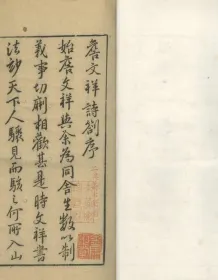 詹文祥詩劄序
始詹文祥與余為同舍生數以制
義事切劘相勸甚是時文祥書
法妙天下人驟見而駭之何所入山